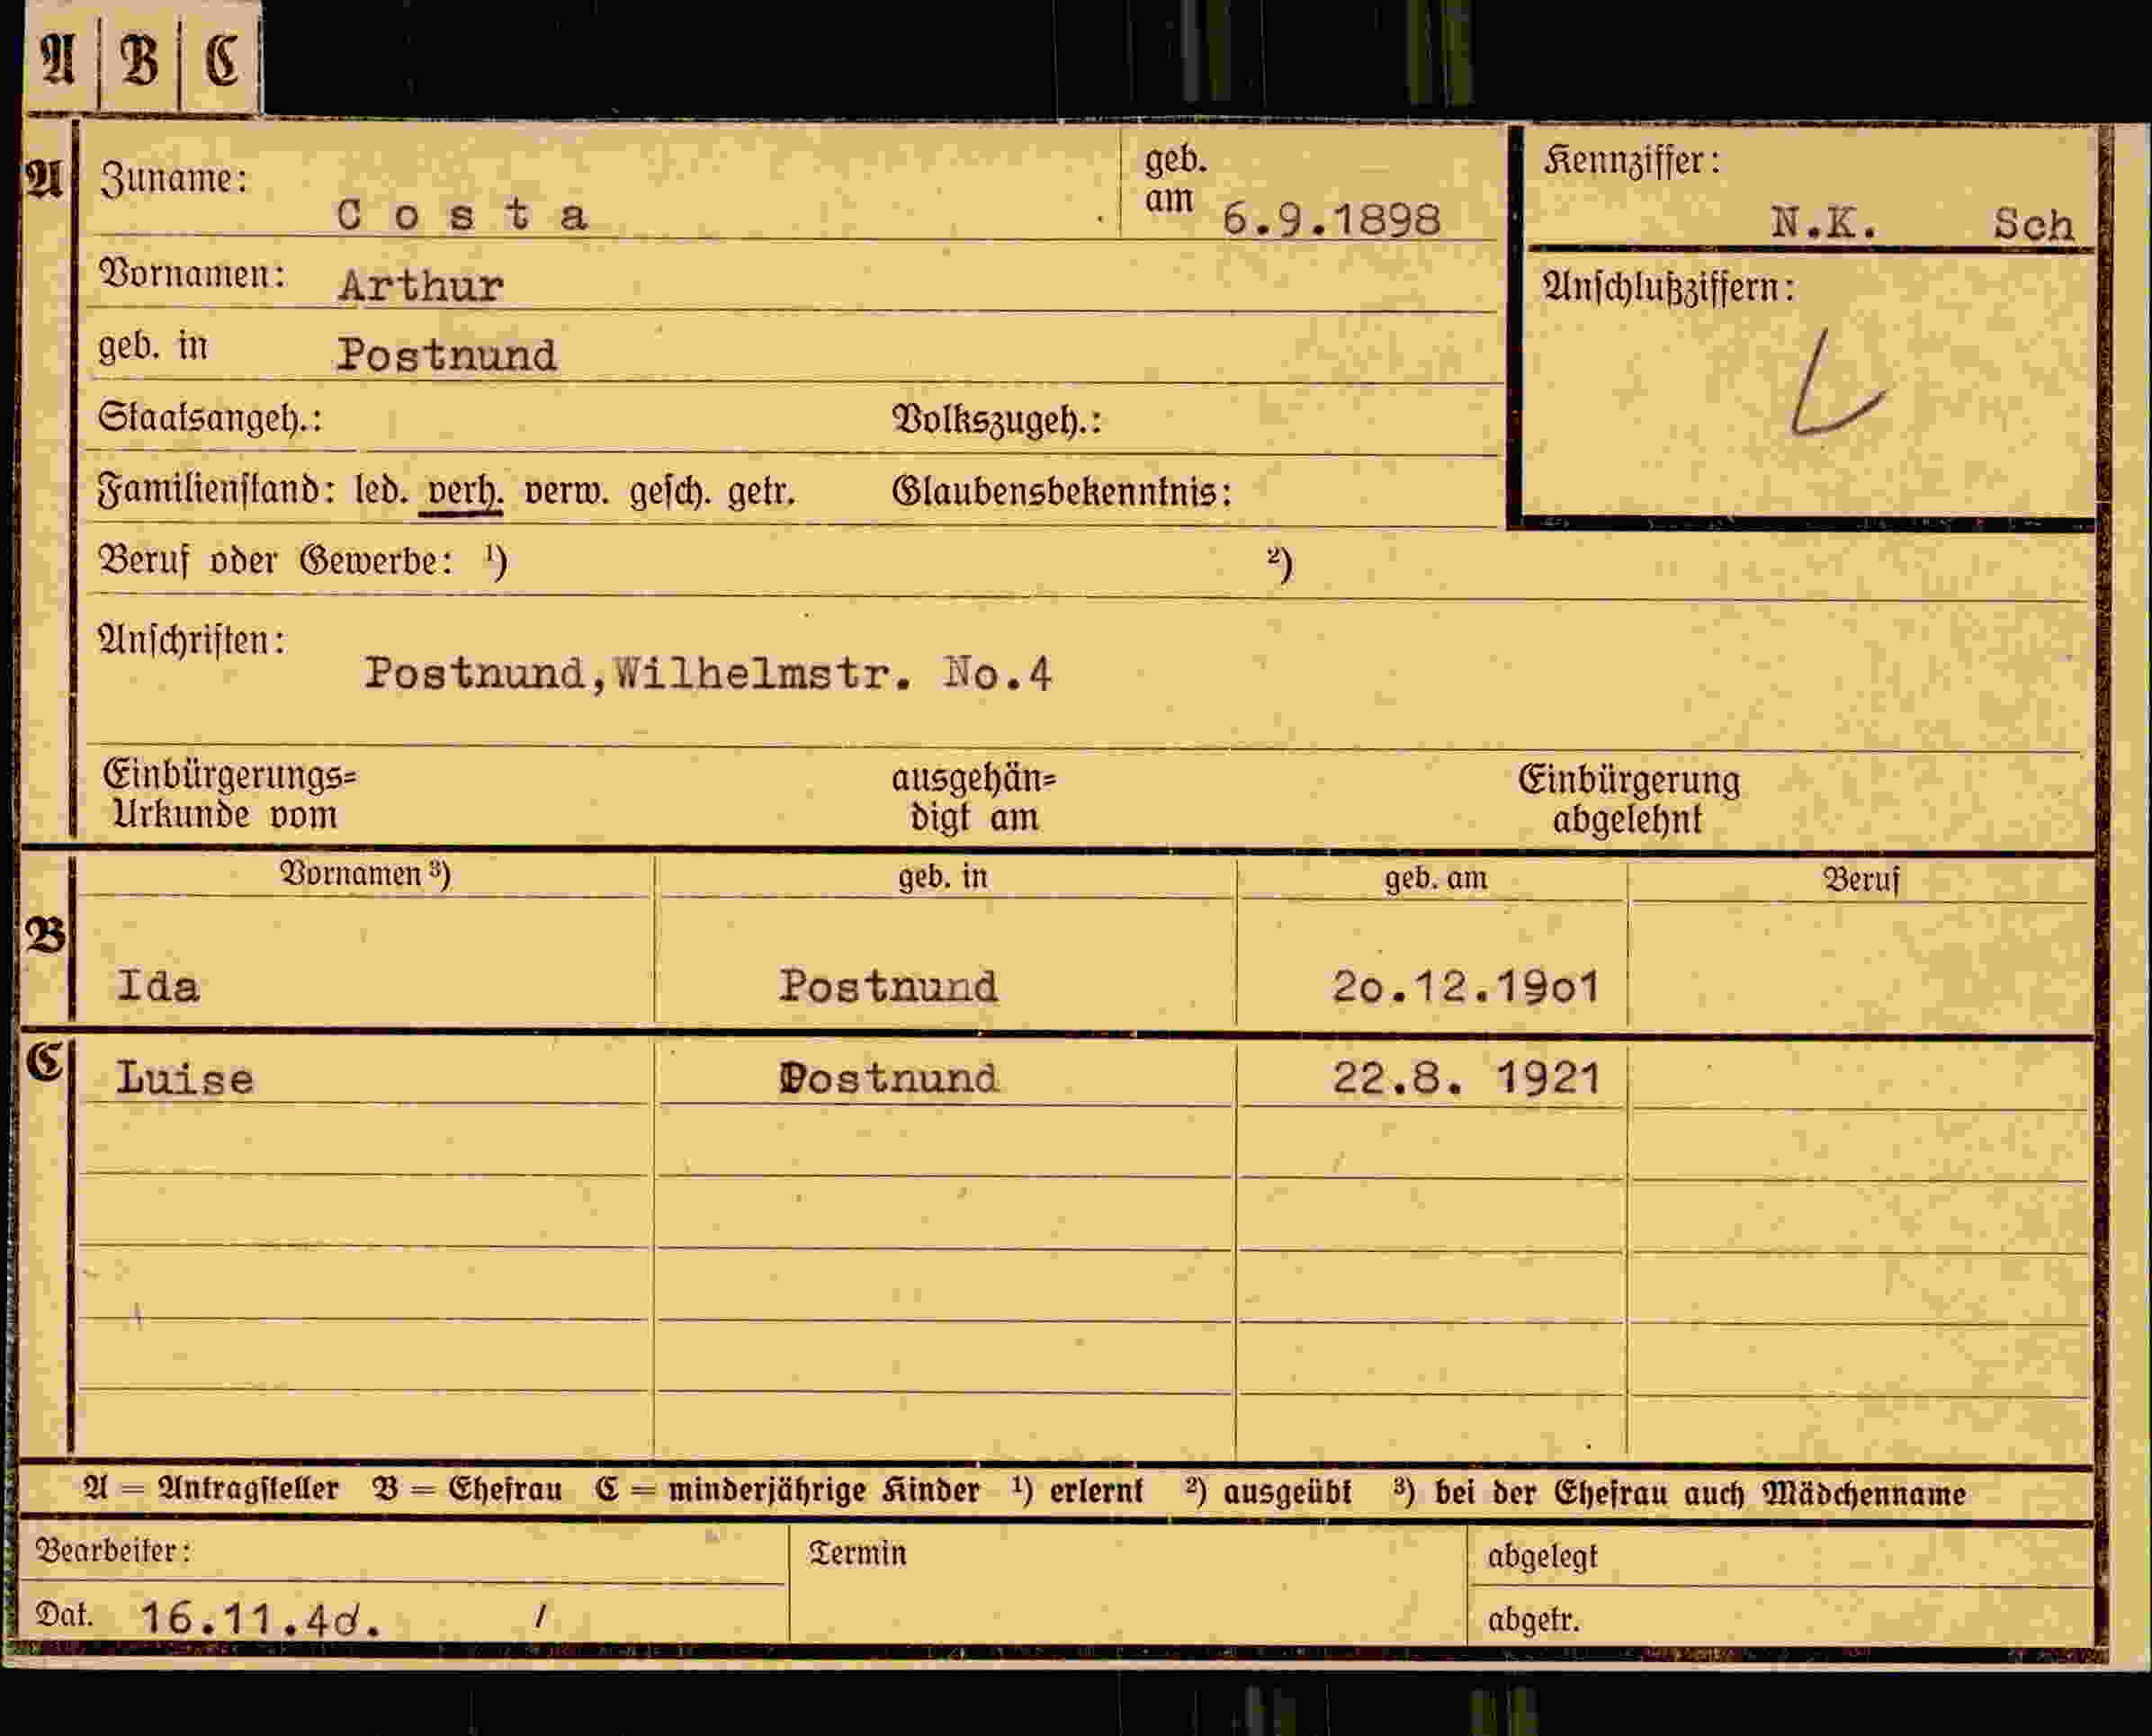 A | B | C
A Zuname: Costa geb. am 6.9.1898
Kennziffer: N.K. Sch
Vornamen: Arthur
Anschlußziffern:
geb. in Postnund
Staatsangeh.: Volkszugeh.:
Familienstand: led. verh. verw. gesch. getr. Glaubensbekenntnis:
Beruf oder Gewerbe: ¹) ²)
Anschriften:
Postnund,Wilhelmstr. No.4
Einbürgerungs= ausgehän= Einbürgerung
Urkunde vom digt am abgelehnt
Vornamen ³) geb. in geb. am Beruf
B
Ida Postnund 2o.12.19o1
C Luise Postnund 22.8. 1921
A = Antragsteller B = Ehefrau C = minderjährige Kinder ¹) erlernt ²) ausgeübt ³) bei der Ehefrau auch Mädchenname
Bearbeiter: Termin abgelegt
Dat. 16.11.4o. / abgetr.